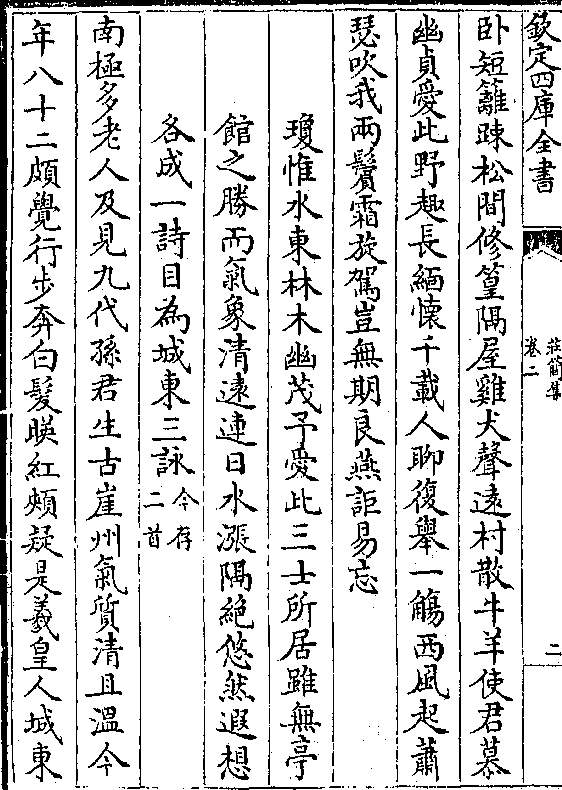 欽定四庫全書
莊簡集
卷二
二
卧短籬踈松間修篁隔屋雞犬聲遠村散牛羊使君慕
幽貞愛此野趣長緬懷千載人聊復舉一觴西風起蕭
瑟吹我兩鬢霜旋駕豈無期良燕詎易忘
瓊惟水東林木幽茂予愛此三士所居雖無亭
館之勝而氣象清遠連日水漲隔絶悠然遐想
各成一詩目為城東三詠今存二首
南極多老人及見九代孫君生古崖州氣質清且溫今
年八十二頗覺行步奔白髮暎紅頰疑是羲皇人城東